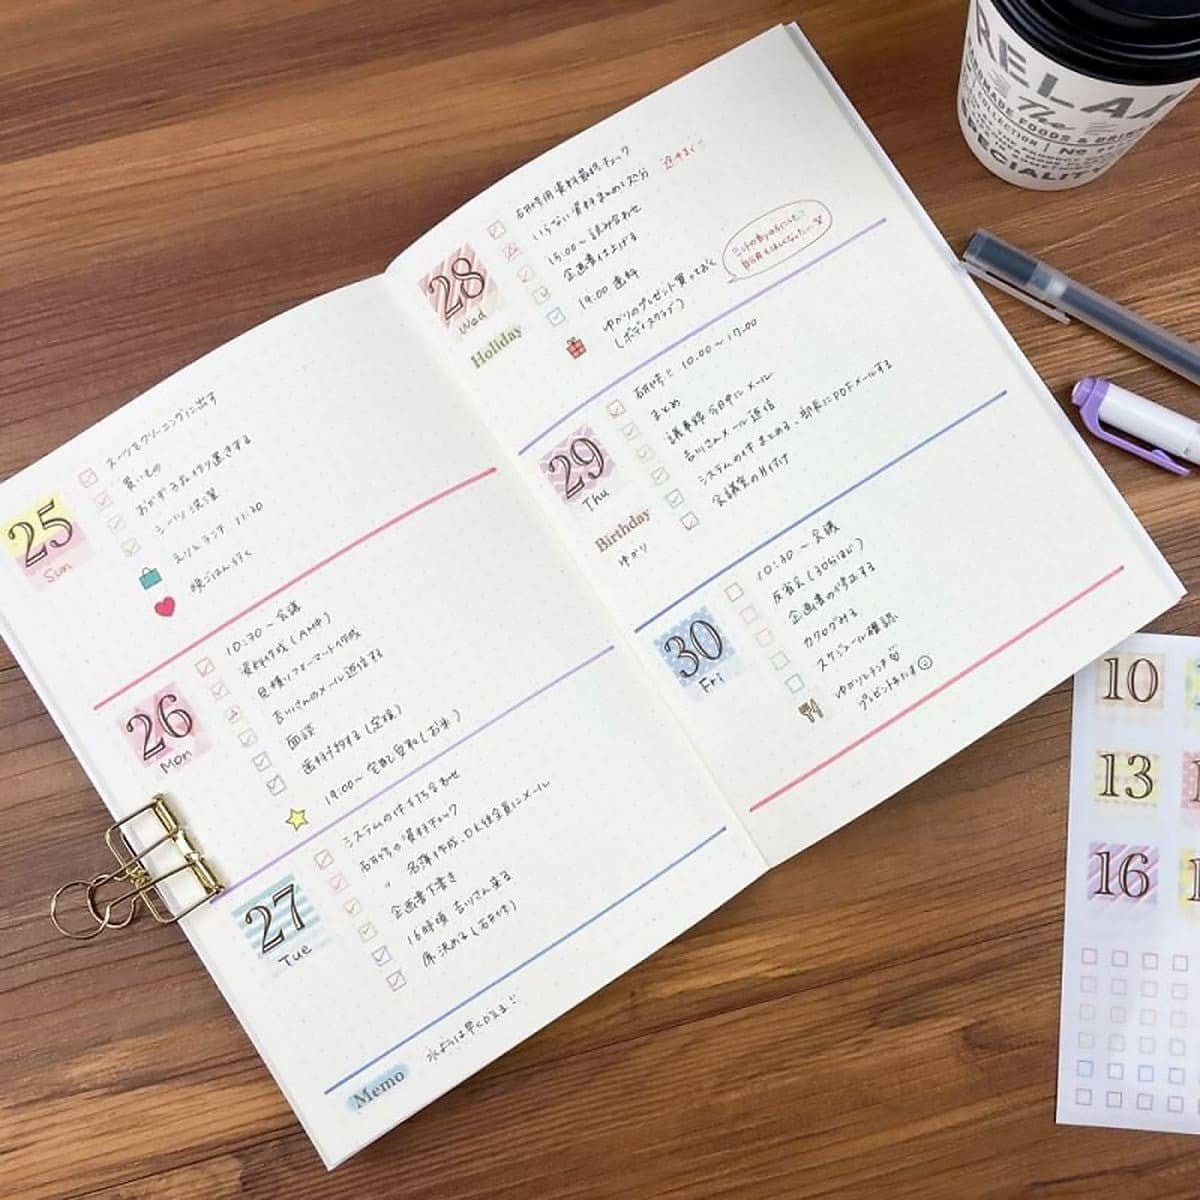 25
Sun
スーツをクリーニングに出す
買いもの
おかず3品作り置きする
シーツ洗濯
えりんランチ 11:30
晩ごはん行く
26
Mon
10:30〜会議
資料作成(AM中)
見積りフォーマット作成
吉川さんのメール返信する
面談
歯科予約する(定検)
19:00〜宅配受取(お米)
27
Tue
システムの件打ち合わせ
研修の資料チェック
〃 名簿作成、OK後全員にメール
企画書下書き
16時頃 吉川さん来る
席決める(研修)
Memo
28
Wed
Holiday
研修用資料最終チェック
いらない資料まとめて処分
15:00〜読み合わせ
企画書仕上げる
19:00 歯科
ゆかりのプレゼント買っておく
(ボディスクラブ)
29
Thu
Birthday
ゆかり
研修 10:00〜17:00
まとめ
議事録 今日中にメール
吉川さんメール返信
システムの件まとめる、部長にPDFメールする
会議室の片付け
30
Fri
10:30〜会議
反省会(30分ほど)
企画書の修正する
カタログみる
スケジュール確認
ゆかりとランチ
プレゼントわたす
RELAX
The
HANDMADE FOODS & DRINKS
COLLECTION
No
SPECIALITY
10
13
16